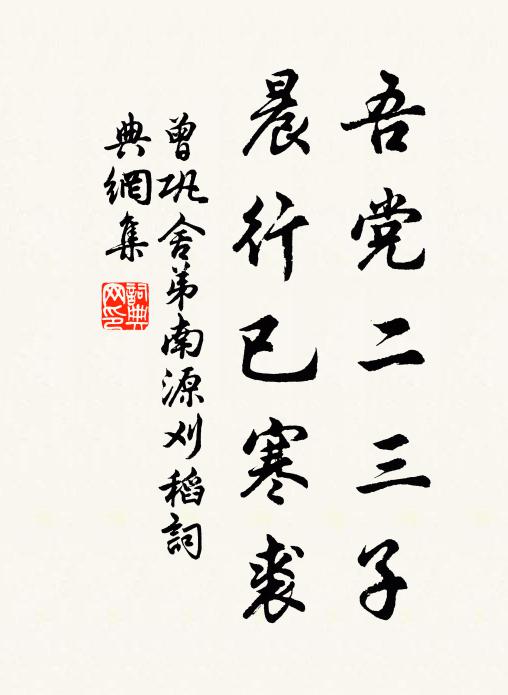 吾党二三子
晨行已寒裘
曾巩舍弟南源刈稻詞
典網集
詞典
网印